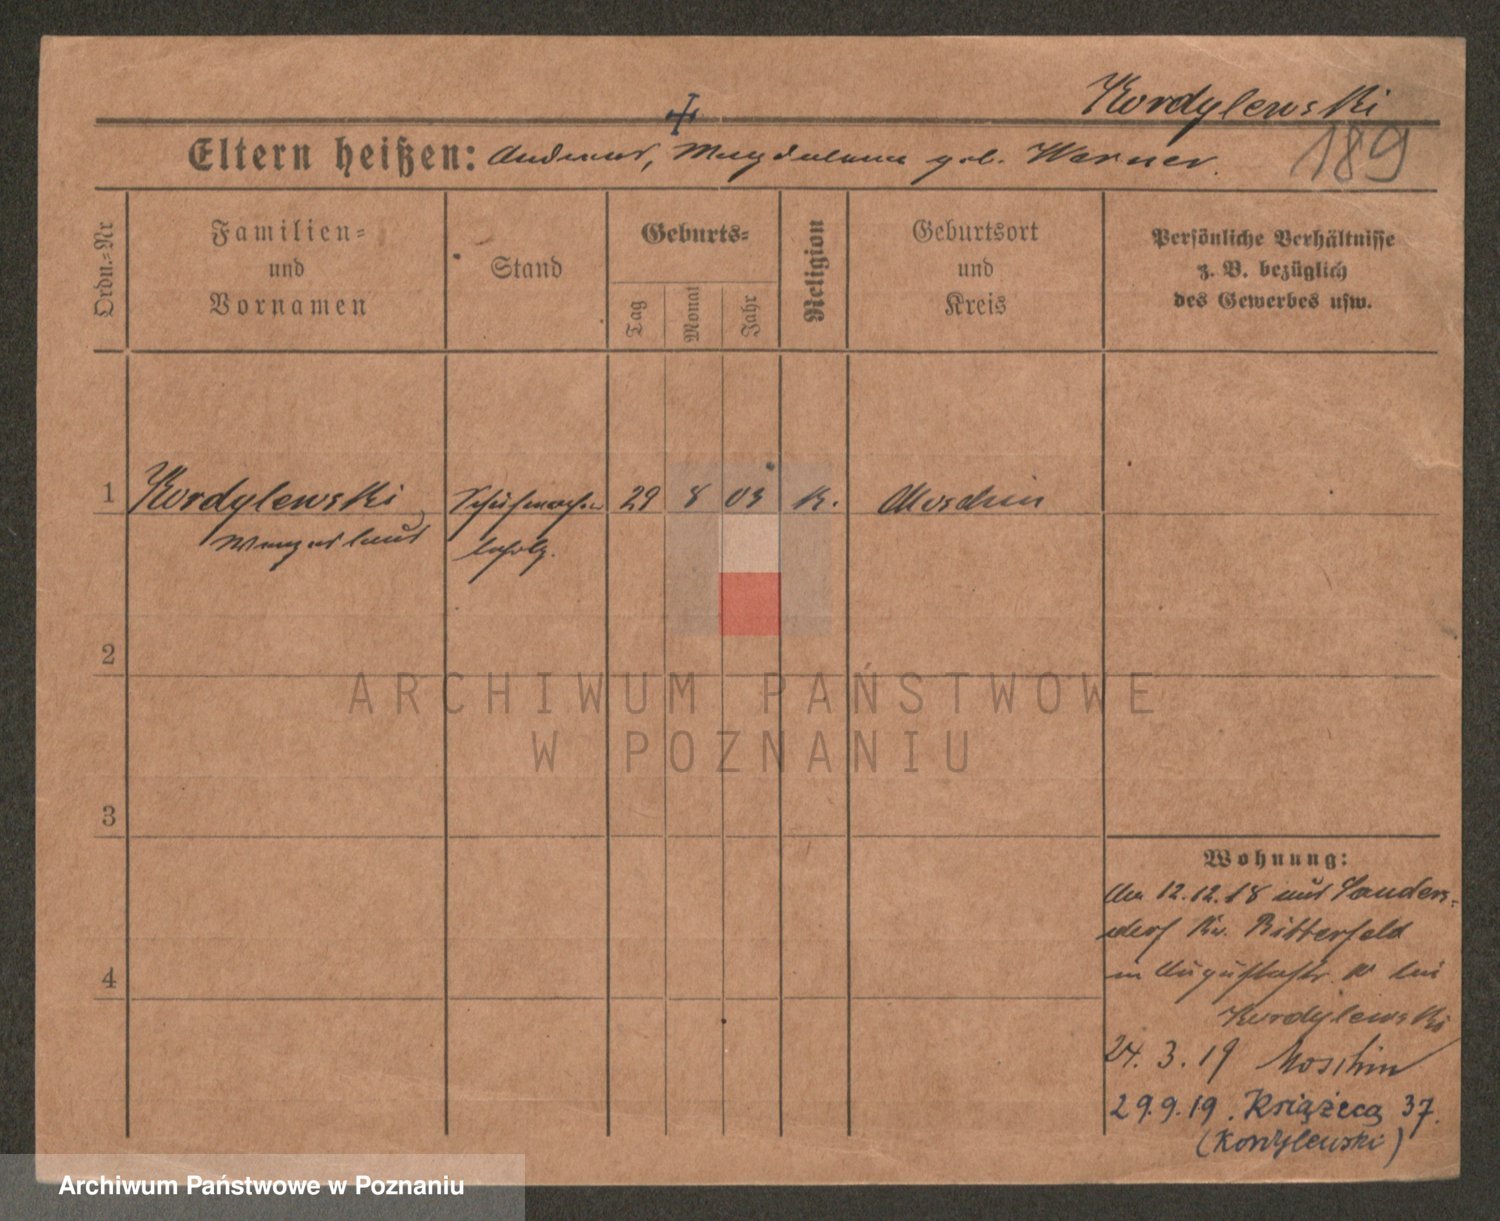 Kordylewski
189
Eltern heißen: Andreas, Magdalena geb. Werner.
Ordn.-Nr
Familien-
und
Vornamen
Stand
Geburts-
Tag
Monat
Jahr
Religion
Geburtsort
und
Kreis
Persönliche Verhältnisse
z. B. bezüglich
des Gewerbes usw.
1 Kordylewski Schuhmacher 29 8 03 K. Moschin
Wenzeslaus
2
3
4
Wohnung:
12.12.18 aus Sanders-
dorf Kr. Bitterfeld
in Augustastr. bei
Kordylewski
24.3.19 Moschin
29.9.19. Książęca 37.
(Kordylewski)
ARCHIWUM PAŃSTWOWE
W POZNANIU
Archiwum Państwowe w Poznaniu